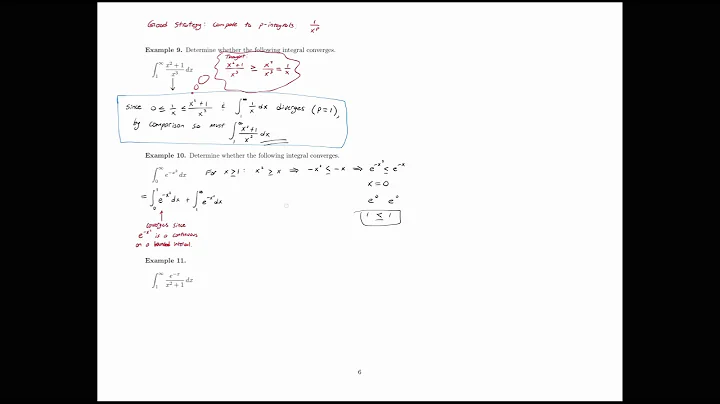 Good Strategy: Compare to p-integrals: 1/x^p
Example 9. Determine whether the following integral converges.
∫_1^∞ (x²+1)/x³ dx
Thought:
(x²+1)/x³ ≥ x²/x³ = 1/x
Since 0 ≤ 1/x ≤ (x²+1)/x³ & ∫_1^∞ 1/x dx diverges (p=1),
by comparison so must ∫_1^∞ (x²+1)/x³ dx
Example 10. Determine whether the following integral converges.
∫_0^∞ e^{-x²} dx For x≥1: x² ≥ x ⇒ -x² ≤ -x ⇒ e^{-x²} ≤ e^{-x}
x=0
= ∫_0^1 e^{-x²} dx + ∫_1^∞ e^{-x²} dx
e^0 e^0
1 ≤ 1
converges since
e^{-x²} is a continuous
on a bounded interval.
Example 11.
∫_1^∞ e^{-x}/(x²+1) dx
6